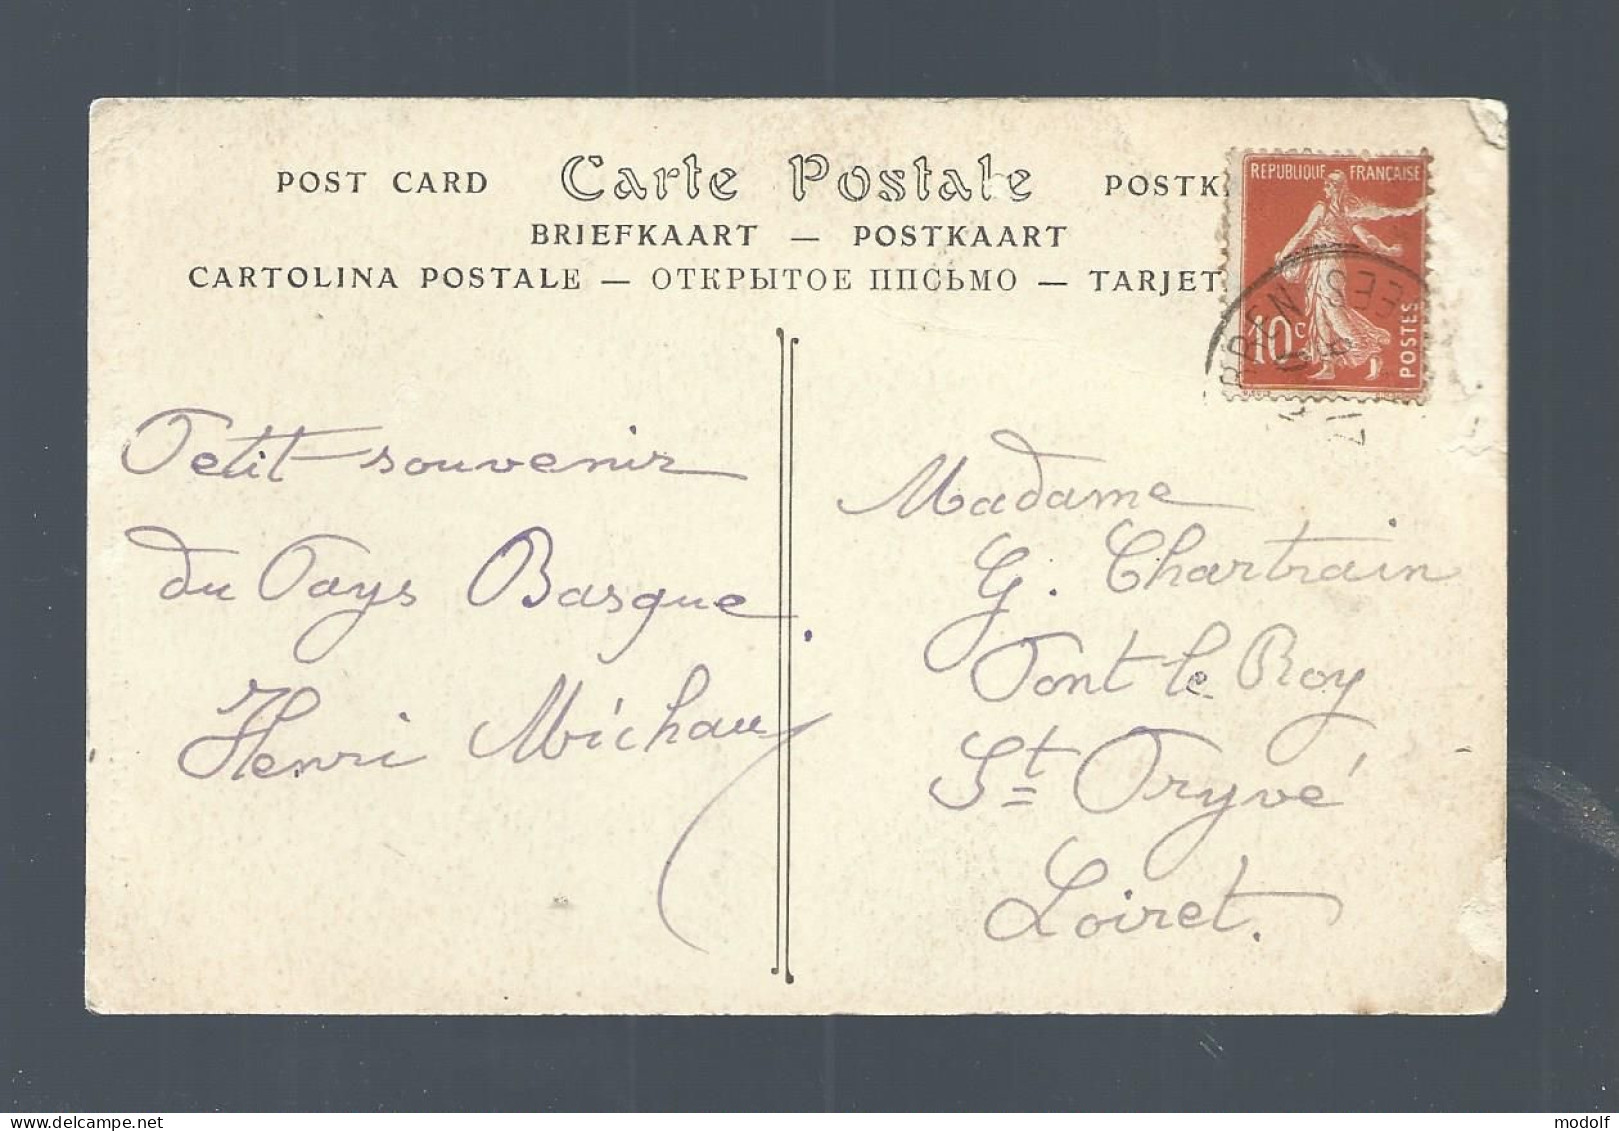 POST CARD Carte Postale POSTK
BRIEFKAART — POSTKAART
CARTOLINA POSTALE — ОТКРЫТОЕ ППСЬМО — TARJET
REPUBLIQUE FRANÇAISE
10 c
POSTES
Petit souvenir
du Pays Basque.
Henri Michau
Madame
G. Chartrain
Pont le Roy
St Pryvé
Loiret.
modolf